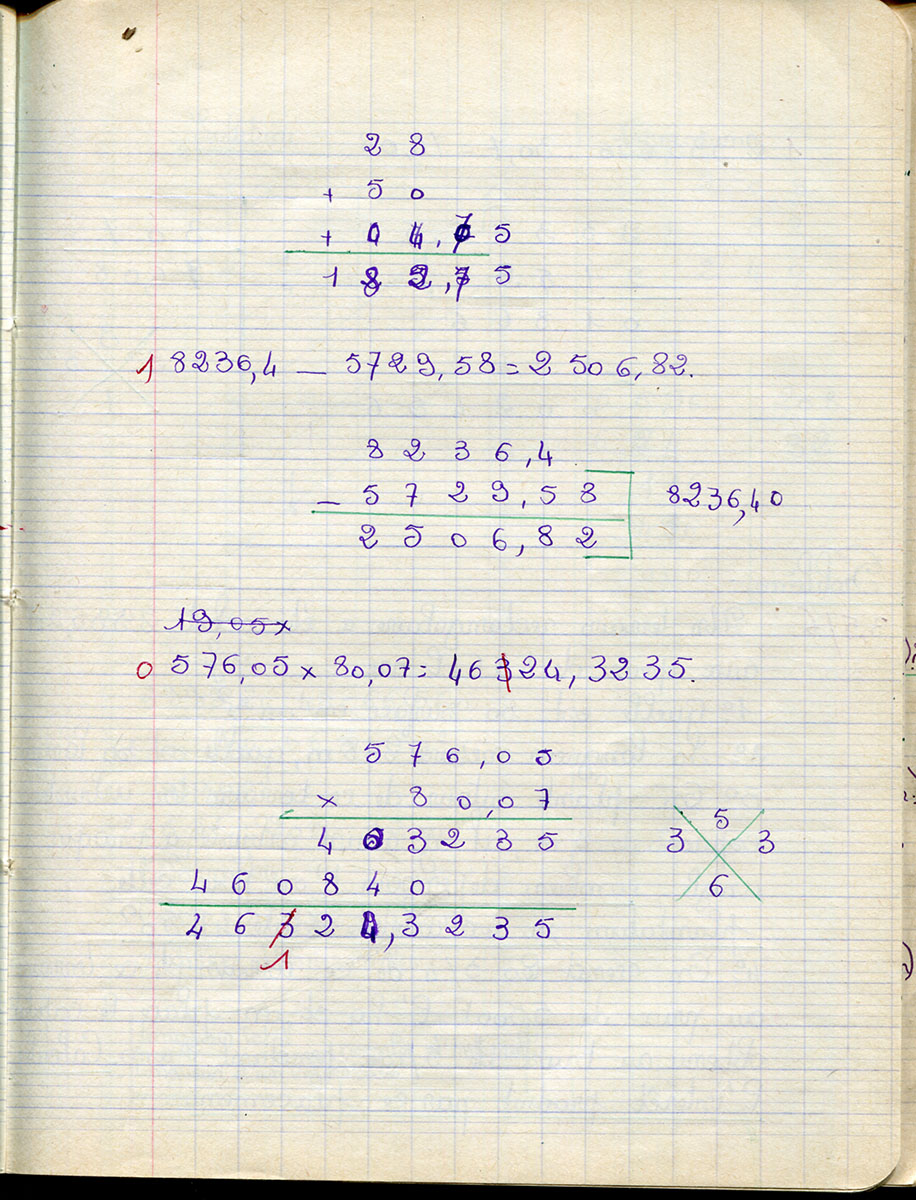 28
+ 50
+ 04,75
182,75
1) 8236,4 — 5729,58 = 2506,82.
8236,4
— 5729,58 8236,40
2506,82
19,05 x
0 576,05 x 80,07 = 46324,3235.
576,05
x 80,07
403235
460840
46324,3235
1
5
3 3
6